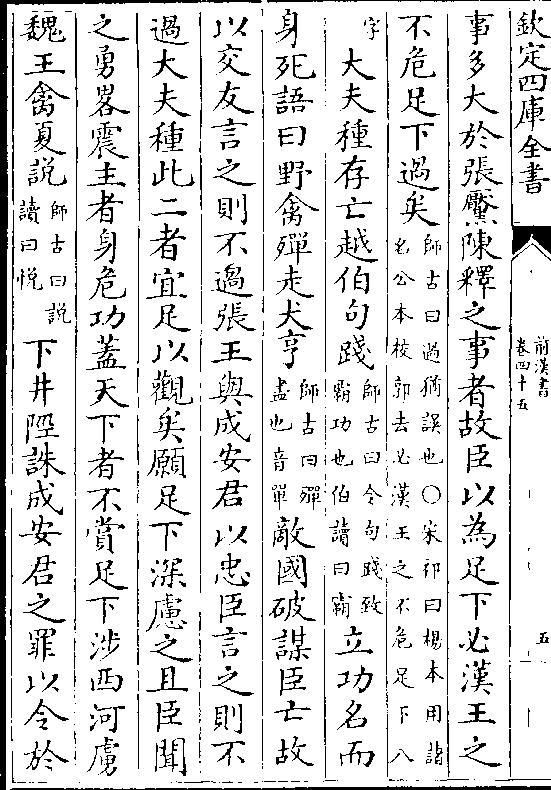 欽定四庫全書
前漢書
卷四十五
五
事多大於張黶陳釋之事者故臣以為足下必漢王之
不危足下過矣師古曰過猶誤也〇宋祁曰楊本用詣
名公本校郭去必漢王之不危足下八
字大夫種存亡越伯句踐師古曰令句踐致
霸功也伯讀曰霸立功名而
身死語曰野禽殫走犬亨師古曰殫
盡也音單敵國破謀臣亡故
以交友言之則不過張王與成安君以忠臣言之則不
過大夫種此二者宜足以觀矣願足下深慮之且臣聞
之勇畧震主者身危功蓋天下者不賞足下涉西河虜
魏王禽夏説師古曰説
讀曰悅下井陘誅成安君之罪以令於